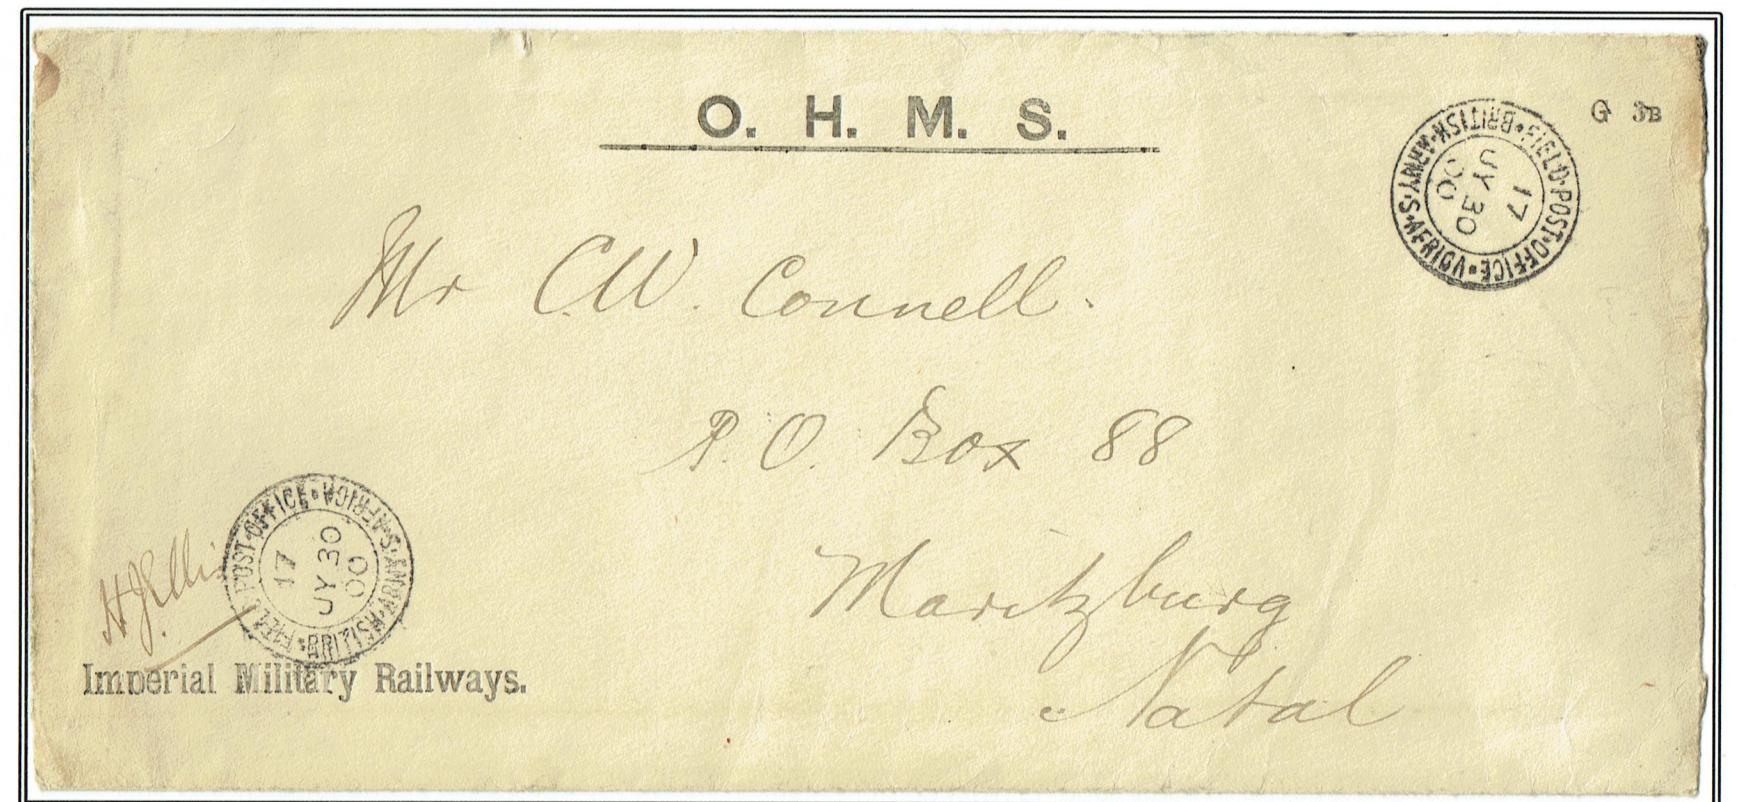 O. H. M. S.
G 3B
FIELD·POST·OFFICE·BRITISH·ARMY·S·AFRICA
17
JY 30
00
Mr C.W. Connell.
P. O. Box 88
Maritzburg
Natal
H J Ellis
FIELD·POST·OFFICE·BRITISH·ARMY·S·AFRICA
17
JY 30
00
Imperial Military Railways.